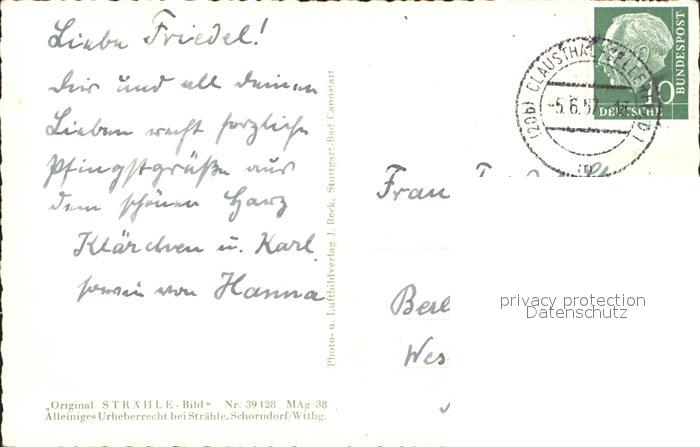 Liebe Friedel!
Dir und all deinen
Lieben recht herzliche
Pfingstgrüße aus
dem schönen Harz
Klärchen u. Karl
sowie von Hanna
Photo- u. Luftbildverlag J. Beck, Stuttgart-Bad Cannstatt
„Original STRÄHLE-Bild“ Nr. 39128 MAg 38
Alleiniges Urheberrecht bei Strähle, Schorndorf/Wttbg.
(20b) CLAUSTHAL-ZELLERFELD 1
-5.6.57
10
DEUTSCHE
BUNDESPOST
Frau
Berl
Wes
privacy protection
Datenschutz